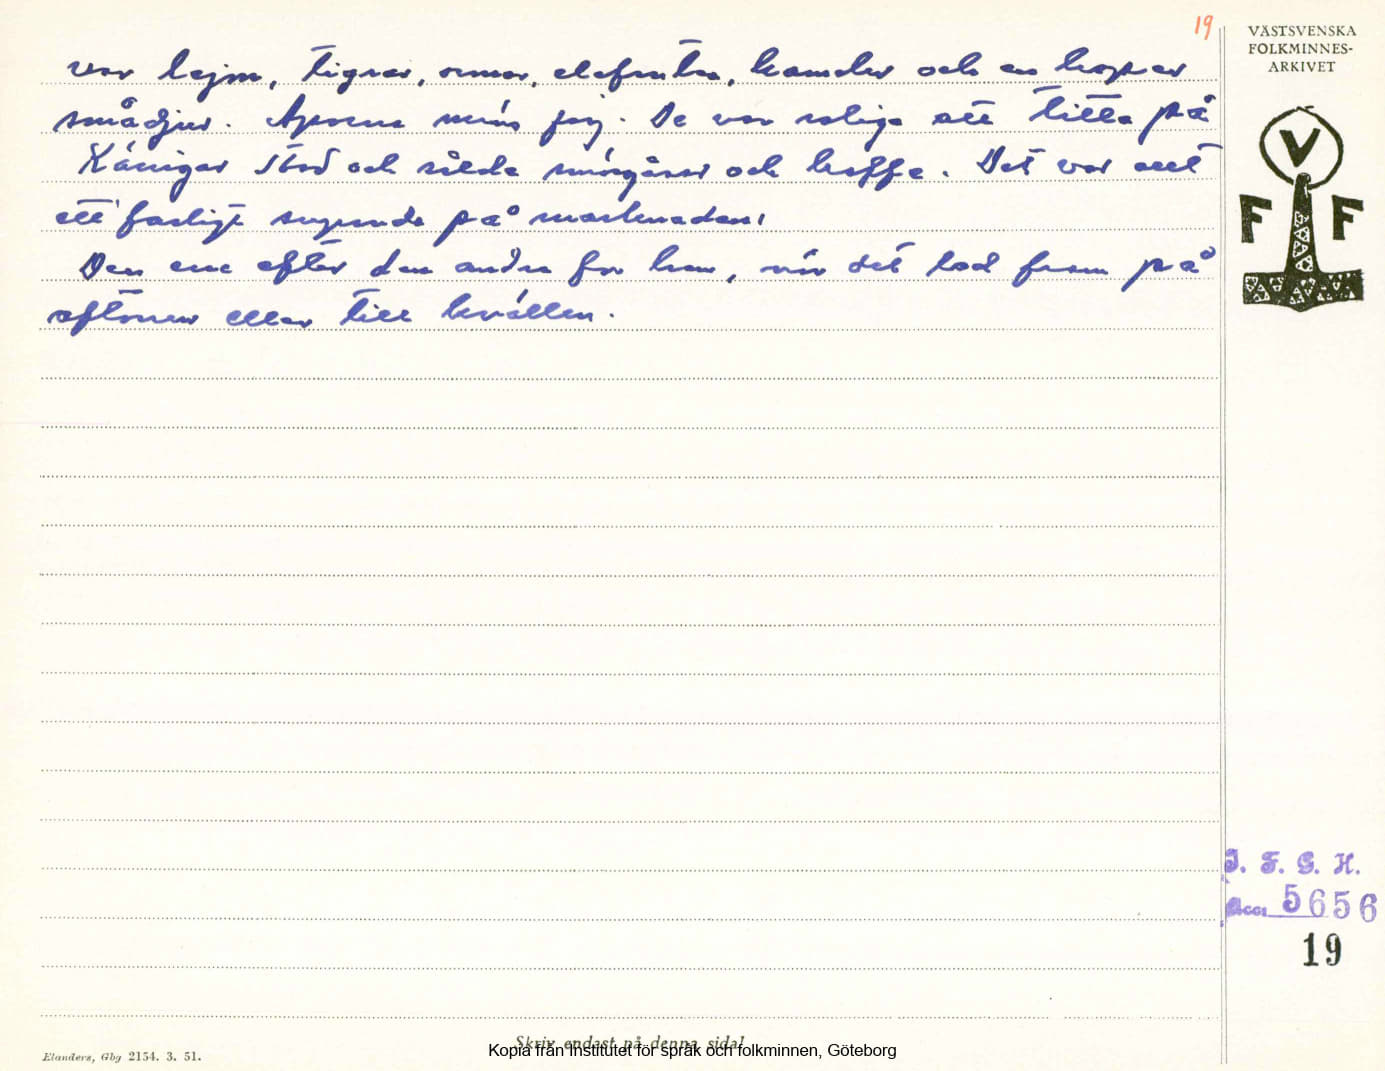 19
VÄSTSVENSKA
FOLKMINNES-
ARKIVET
var lejon, tigrar, ormar, elefanter, kameler och en hoper
smådjur. Aporna minns jag. De var roliga att titta på
Käringar stod och sålde smörgåsar och kaffe. Det var ett
ett farligt supande på marknaden,
Den ene efter den andra for hem, när det led fram på
aftonen eller till kvällen.
V
F F
I. F. G. H.
Acc. 5656
19
Skriv endast på denna sida!
Kopia från Institutet för språk och folkminnen, Göteborg
Elanders, Gbg 2154. 3. 51.